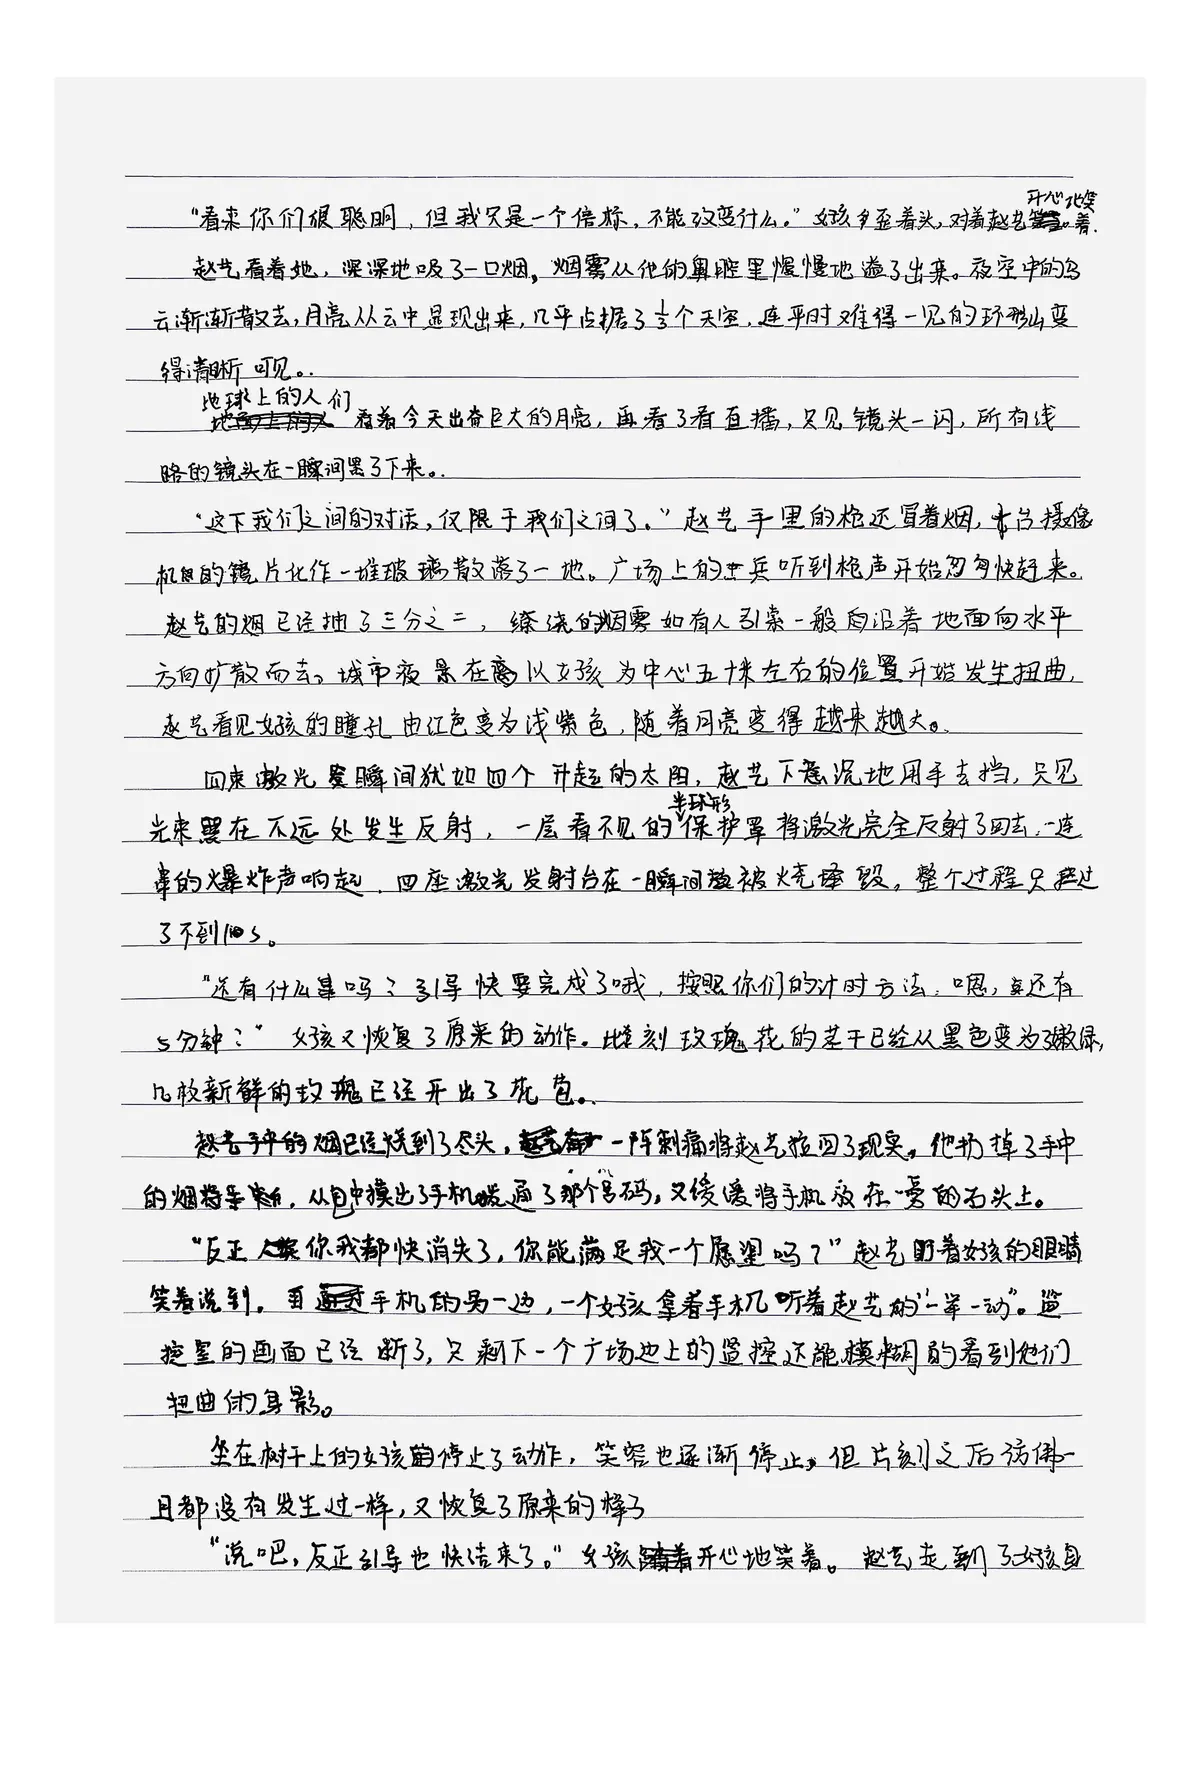 “看来你们很聪明，但我只是一个信标，不能改变什么。”女孩歪着头，对着赵艺开心地笑着.
赵艺看着她，深深地吸了一口烟，烟雾从他的鼻腔里慢慢地溢了出来。夜空中的乌
云渐渐散去，月亮从云中显现出来，几乎占据了1/3个天空，连平时难得一见的环形山变
得清晰可见。
地球上的人们看着今天出奇巨大的月亮，再看了看直播，只见镜头一闪，所有线
路的镜头在一瞬间黑了下来。
“这下我们之间的对话，仅限于我们之间了。”赵艺手里的枪还冒着烟，十台摄像
机的镜片化作一堆玻璃散落了一地。广场上的士兵听到枪声开始匆匆快赶来。
赵艺的烟已经抽了三分之二，缭绕的烟雾如有人引索一般向沿着地面向水平
方向扩散而去。城市夜景在离以女孩为中心五十米左右的位置开始发生扭曲，
赵艺看见女孩的瞳孔由红色变为浅紫色，随着月亮变得越来越大。
四束激光瞬间犹如四个升起的太阳，赵艺下意识地用手去挡，只见
光束在不远处发生反射，一层看不见的半球形保护罩将激光完全反射了回去，一连
串的爆炸声响起，四座激光发射台在一瞬间被烧毁，整个过程只经过
了不到10s。
“还有什么事吗？引导快要完成了哦，按照你们的计时方法，嗯，还有
5分钟？”女孩又恢复了原来的动作。此刻玫瑰花的茎干已经从黑色变为了嫩绿，
几枚新鲜的玫瑰已经开出了花苞。
赵艺手中的烟已经烧到了尽头，一阵刺痛将赵艺拉回了现实。他扔掉了手中
的烟，从包中摸出了手机拨通了那个号码，又缓缓将手机放在一旁的石头上。
“反正你我都快消失了，你能满足我一个愿望吗？”赵艺盯着女孩的眼睛
笑着说到。而手机的另一边，一个女孩拿着手机听着赵艺的“一举一动”。监
控里的画面已经断了，只剩下一个广场边上的监控还能模糊的看到他们
扭曲的身影。
坐在树干上的女孩停止了动作，笑容也逐渐停止，但片刻之后仿佛一
且都没有发生过一样，又恢复了原来的样子
“说吧，反正引导也快结束了。”女孩开心地笑着。赵艺走到了女孩身